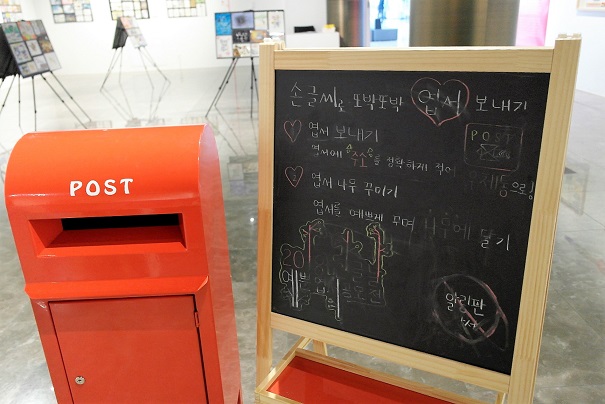 POST
손글씨로 또박또박 엽서 보내기
엽서 보내기
POST
엽서에 주소를 정확하게 적어 우체통으로!
엽서 나무 꾸미기
엽서를 예쁘게 꾸며 나무에 달기
20
예쁜
알림판
낙서